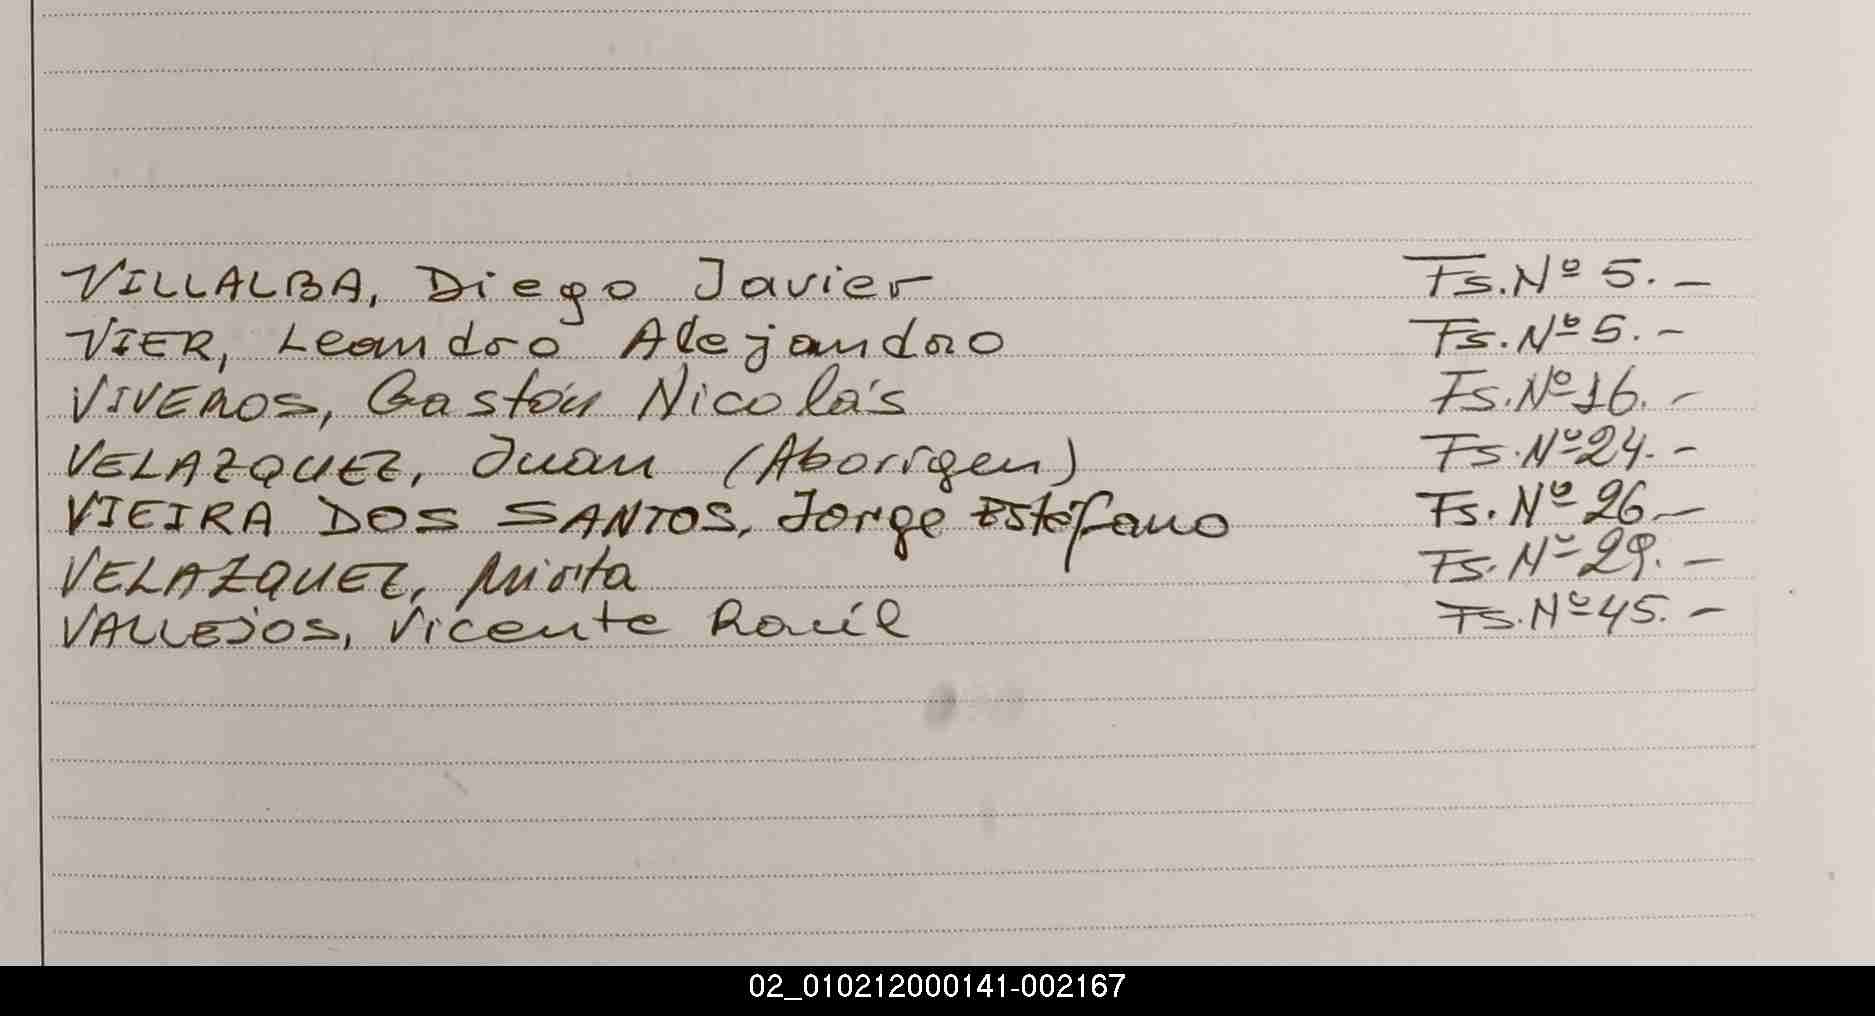 VILLALBA, Diego Javier Fs. Nº 5. -
VIER, Leandro Alejandro Fs. Nº 5. -
VIVEROS, Gastón Nicolás Fs. Nº 16. -
VELAZQUEZ, Juan (Aborigen) Fs. Nº 24. -
VIEIRA DOS SANTOS, Jorge Estéfano Fs. Nº 26. -
VELAZQUEZ, Mirta Fs. Nº 29. -
VALLEJOS, Vicente Raúl Fs. Nº 45. -
02_010212000141-002167